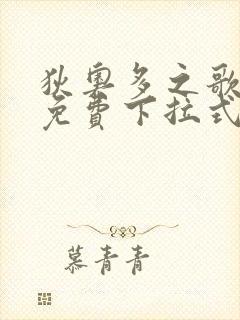 狄奧多之歌
免費下拉式
慕青青